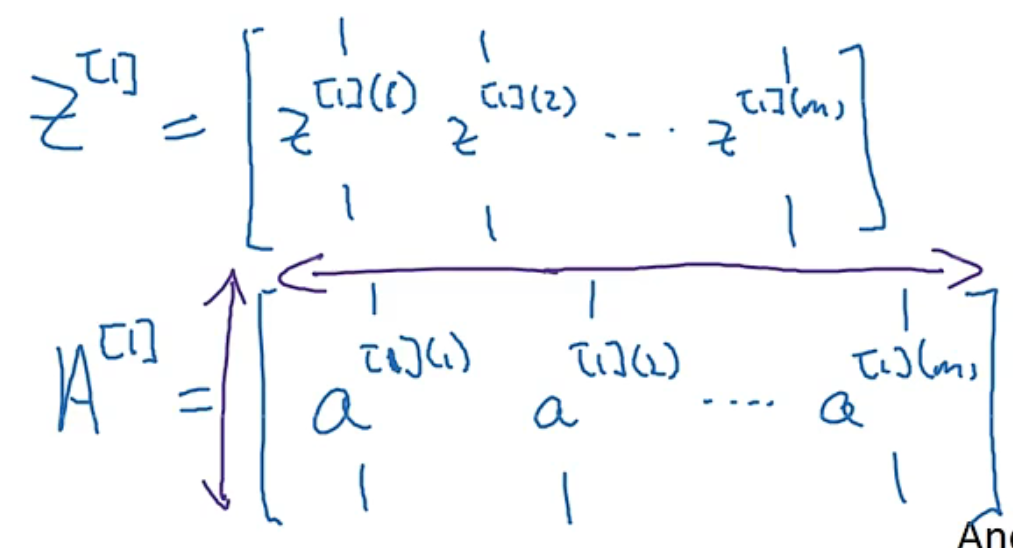 Z^[1] = [ z^[1](1) z^[1](2) ... z^[1](m) ]
A^[1] = [ a^[1](1) a^[1](2) .... a^[1](m) ]
And